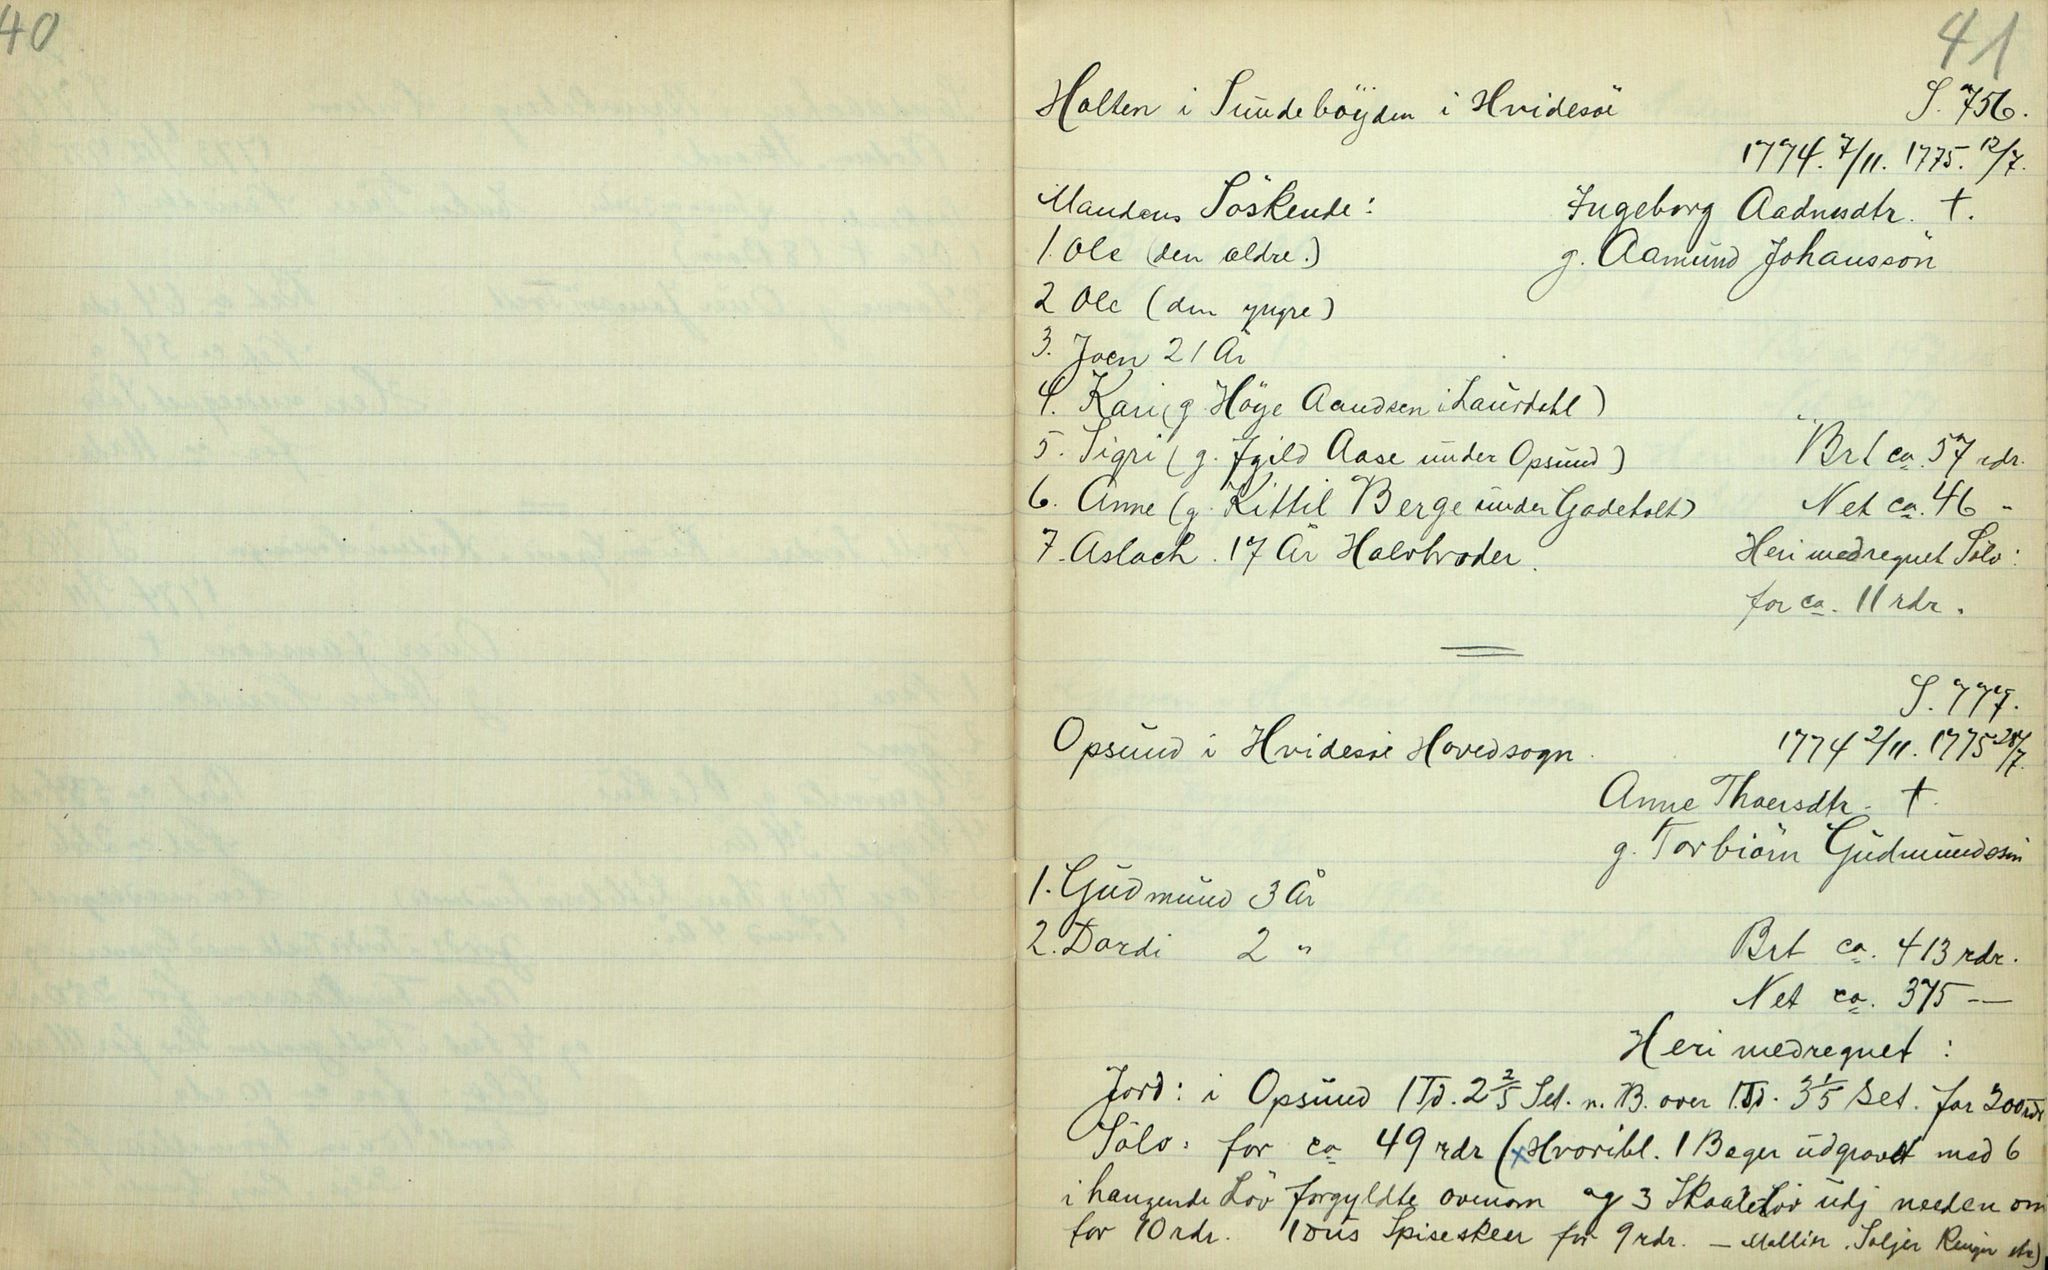 40
41
Holten i Sundebøyden i Hvidesöe S. 756.
1774. 7/11. 1775. 12/7.
Mandens Söskende: Ingeborg Aadnesdtr. †.
1. Ole (den ældre.) g. Aamund Johansson
2 Ole (den yngre)
3. Joen 21 År
4. Kari (g. Høye Aandsen i Laurdahl)
5. Sigri (g. Jgild Aase under Opsund) Brt ca. 57 rdr.
6. Anne (g. Kittil Berge under Gadeholt) Net ca. 46 "
7. Aslach. 17 År Halvbroder. Heri medregnet Sölv:
for ca. 11 rdr.
S. 777.
Opsund i Hvidesöe Hovedsogn. 1774 2/11. 1775 28/7.
Anne Thoersdtr. †.
g. Torbiörn Gudmundssön
1. Gudmund 3 År
2. Dordi 2 " Brt ca. 413 rdr.
Net ca. 375 —
Heri medregnet:
Jord: i Opsund 1 Td. 2 2/5 Set. n. B. over 1 Td. 3 1/5 Set. for 300 rdr
Sölv: for ca 49 rdr (x Hvoribl. 1 Bæger udgravet med 6
i hangende Löv forgyldte ovenom og 3 Skaalelöv udj neden om
for 10 rdr. 1 dus Spiseskeer for 9 rdr. — Mallier, Söljer Ringer etc)